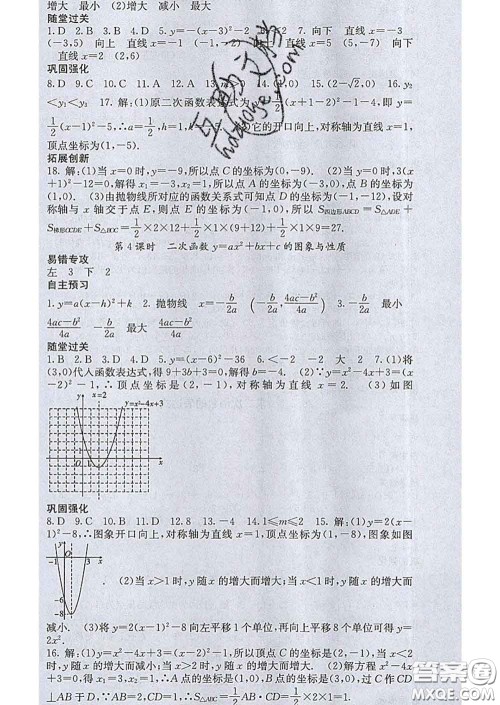 增大 最小 (2)增大 减小 最大
随堂过关
1.D 2.D 3.C 4.D 5.y=-(x-3)²-2 6. 2 7. 向下 直线 x=-3
(-3,5) 向上 直线 x=-1 (-1, 直线 x=5 (5,-7) 向下
直线 x=2 (2,6)
巩固强化
8.D 9.C 10.C 11.A 12.A 14.(1,0) 15.(2-√2,0) 16.y₂
<y₃<y₁ 17. 解:(1)原二次函数表达式为 (x+1-2)²-1-4,即 y=
1/2(x-1)²-5,∴a=1/2,h=1, 它的开口向上,对称轴为直线 x=1,
顶点坐标为(1,-5).
拓展创新
18. 解:(1)当 x=0 时,y=-9,所以点 C 的坐标为(0,-9). (2)当 y=0 时,3(x
+1)²-12=0,解得 x₁=-3,x₂=1,所以点 A 的坐标为(-3,0),点 B 的坐标为
(1,0). (3)由抛物线所对应的函数关系式可知点 D 的坐标为(-1,-12),设对
称轴与 x 轴交于点 E,则点 E 的坐标为(-1,0),所以 S四边形ABCD=S△ADE+
S梯形OCDE+S△BOC=1/2×2×12+1/2×1×(9+12)+1/2×1×9=27.
第 4 课时 二次函数 y=ax²+bx+c 的图象与性质
易错专攻
左 3 下 2
自主预习
1.y=a(x-h)²+k 2. 抛物线 x=-b/2a (-b/2a,(4ac-b²)/4a) 3.-b/2a 最小
(4ac-b²)/4a -b/2a 最大 (4ac-b²)/4a
随堂过关
1.B 2.B 3.D 4.D 5.y=(x-6)²-36 6.<-2 -2 大 2 7.(1)将
(3,0)代入函数表达式,得 9+3b+3=0,解得 b=-4. (2)∵y=x²-4x+3=(x
-2)²-1,∴顶点坐标是(2,-1),对称轴为直线 x=2. (3)如图
y x=2
y=x²-4x+3
x
巩固强化
8.D 9.C 10.B 11.D 12.8 13.-4 14.1≤m≤2 15. 解:(1)y=2(x-
1)²-8,∴图象开口向上,对称轴为直线 x=1,顶点坐标为(1,-8),图象如图
y
-1 3 x
-6
-8
. (2)当 x>1 时,y 随 x 的增大而增大;当 x<1 时,y 随 x 的增大而
减小. (3)将 y=2(x-1)²-8 向左平移 1 个单位,再向上平移 8 个单位可得 y=
2x².
16. 解:(1)y=x²-4x+3=(x-2)²-1,∴顶点 C 的坐标是(2,-1),当 x≤2
时,y 随 x 的增大而减小;当 x≥2 时,y 随 x 的增大而增大. (2)解方程 x²-4x
+3=0,得 x₁=3,x₂=1,∴A 点的坐标是(1,0),B 点的坐标是(3,0),过 C 作 CD
⊥AB 于 D,∵AB=2,CD=1,∴S△ABC=1/2AB·CD=1/2×2×1=1.
答案圈
MXQE.COM